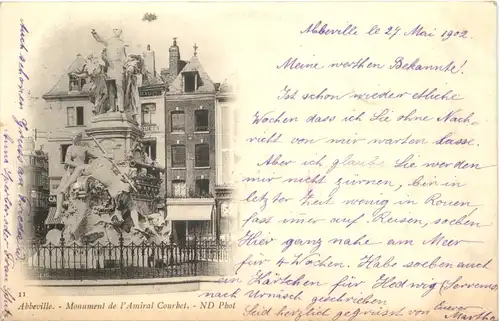 Abbeville le 27 Mai 1902.
Meine werthen Bekannte!
Ist schon wieder etliche
Wochen dass ich Sie ohne Nach-
richt von mir warten lasse.
Aber ich glaube Sie werden
mir nicht zürnen, bin in
letzter Zeit wenig in Rouen
fast immer auf Reisen, soeben
Hier ganz nahe am Meer
für 4 Wochen. Habe soeben auch
ein Kärtchen für Hedwig
nach Urnäsch geschrieben
Seid herzlich gegrüsst von Euerer
Martha
Auch schönen Gruss an
der Frau
11
Abbeville. - Monument de l'Amiral Courbet. - ND Phot